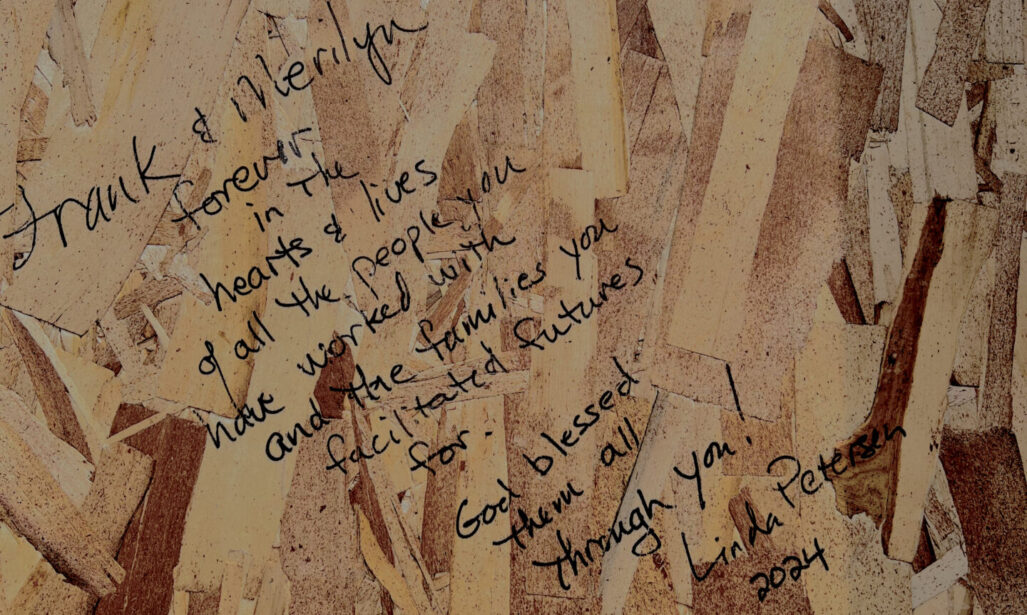 Frank & Merilyn
forever
in the
hearts & lives
of all the people you
have worked with
and the families you
facilitated futures
for.
God blessed
them all
through you!
Linda Petersen
2024